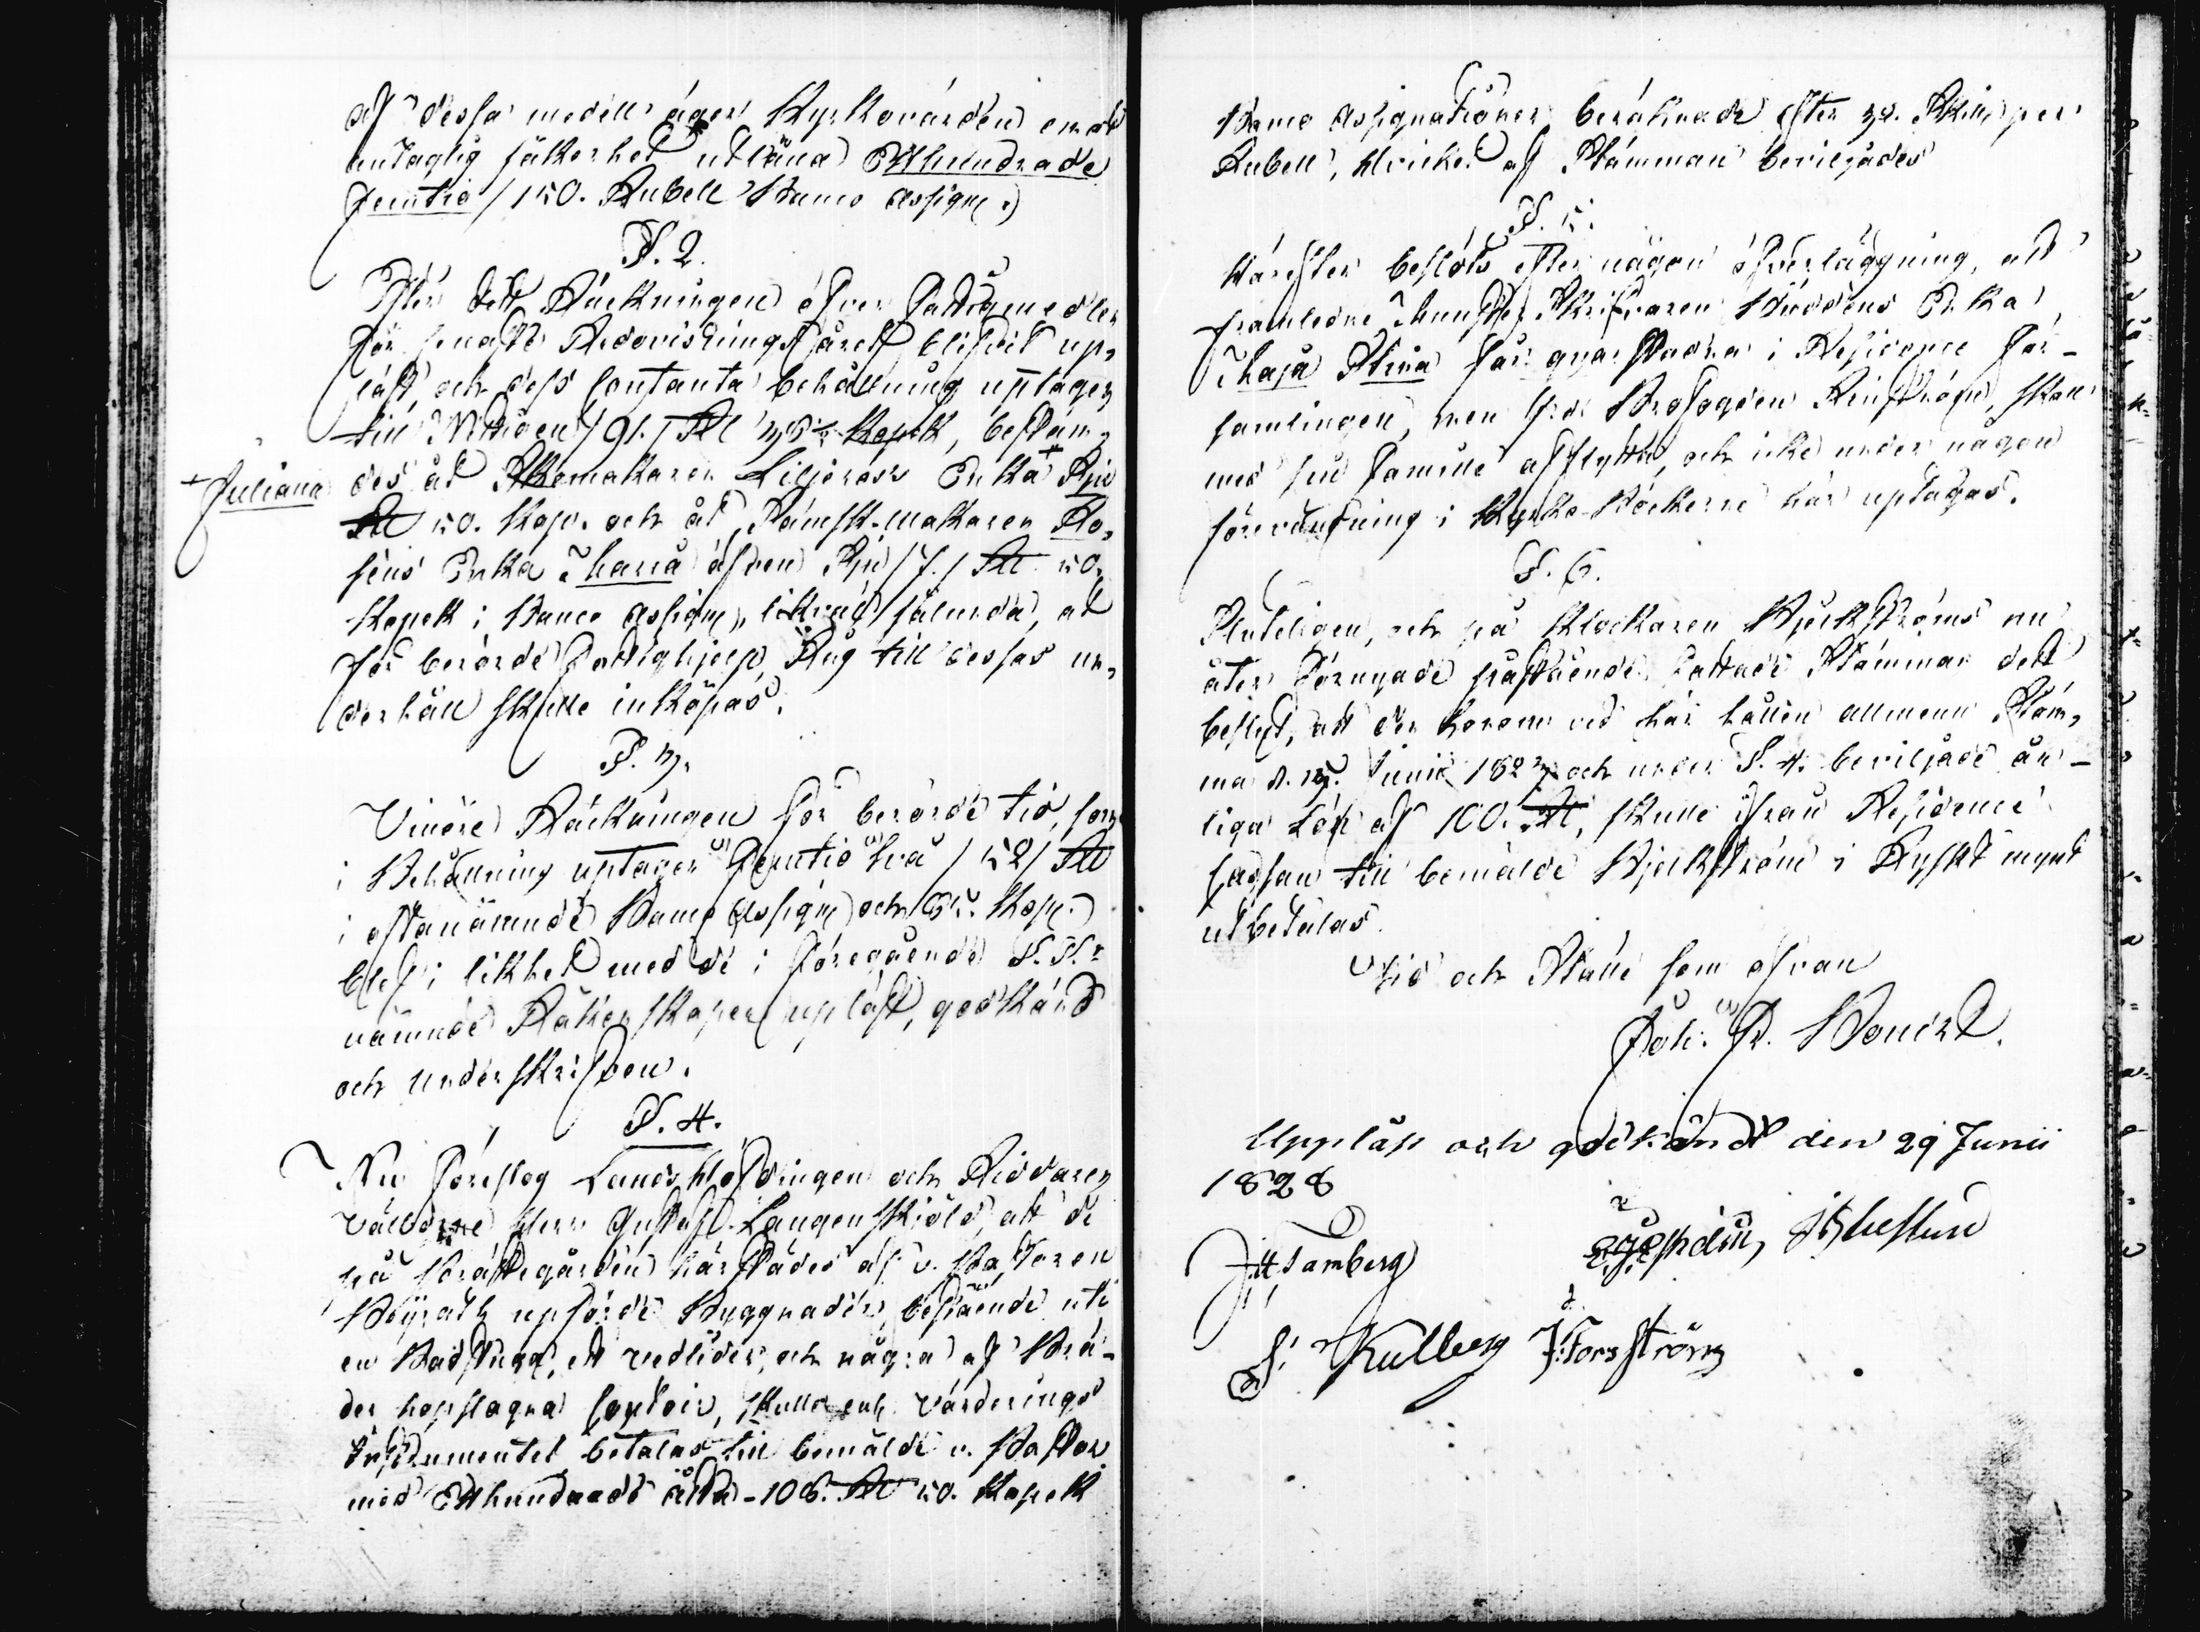 af dessa medell äger Kyrkovärden emot
untaglig säkerhet utlåna Etthundrade
femtio /150. Rubell Banco Assign.)
§. 2.
Efter det Räckningen öfver Fattigmedlen
för senaste Redovisningsåret blifvit up-
läst, och dess contanta behållning uptagen
till Nittioen / 91. / Rl 38½ Kopek, bestäm-
des åt Skomakaren Liljeroos Enka + Sju
+ Juliana
Rl 50. Kop. och åt Sämsk-makaren Ro-
séns Enka Maria äfven Sju /7./ Rl 50.
Kopek i Banco Assign, likväl sålunda, at
för berörde Fattighjelp, Råg till dessas un-
derhåll skulle inköpas.
§. 3.
Vidare Räckningen för berörde tid, som
i Behållning uptager Femtio två / 52 / Rl
i oftanämnde Banco Assign och 65. Kop.
blef i likhet med de i föregående §.§.r
nämnde Räkenskaper upläst, godkänd
och underskrifven.
§. 4.
Nu föreslog Landshöfdingen och Riddaren
Välborne Herr Gustaf Langenskiöld, att de
på Prästegården härstädes af v. Pastoren
upförde Byggnader, bestående uti
en Badstuga, ett vedlider, och några af Brä-
der hopslagna contoir, skulle enl. värderings
Instrumentet betalas till bemälde v. Pastor
med Etthundrade åtta - 108. Rl 50. Kopek
Banco Assignationer beräknade efter 32. Skill per
Rubell, hvilket af Stämman beviljades
§. 5.
Härefter beslöts efter någon öfverläggning, att
framledne Munster Skrifvaren Enka
Maja Stina får qvarstadna i Residence för-
samlingen, men f.d. Brofogden skall
med sin Familie afflytta, och icke under någon
förevändning i Kyrko-Böckerne här uptagas.
§. 6.
Sluteligen, och på Klockaren Björkströms nu
åter förnyade påstående, fattade Stämman dett
beslut, att den honom vid här hållen allmenn Stäm-
ma d. 27. Junii 1823 och under §. 4. beviljade år-
liga Lön af 100. Rl, skulle ifrån Residence
Cassan till bemälde Björkström i Ryskt mynt
utbetalas.
tid och Ställe som ofvan
Joh. F. Bonsdorff.
Uppläst och godkändt den 29 Junii
1828
J H Tamberg
S: Kullberg J: Forsström